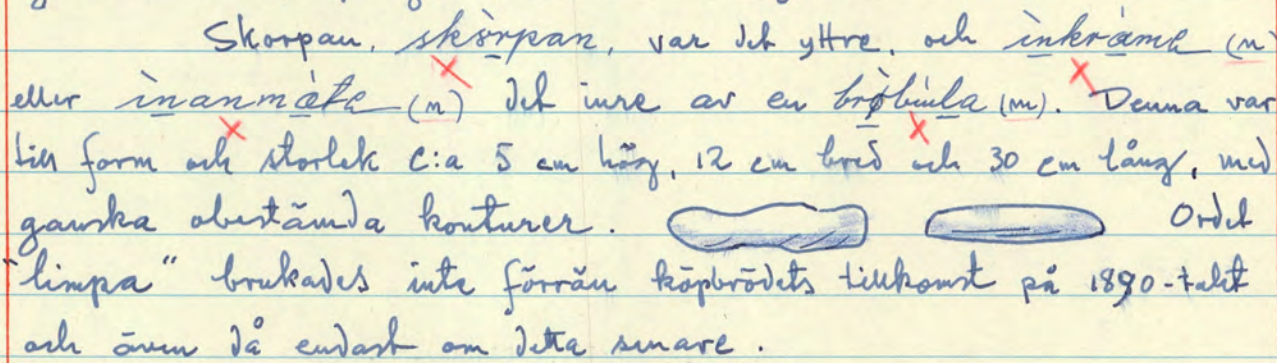 Skorpan, skòrpan, var det yttre, och ìnkràme (n)
eller ìnanmàte (n) det inre av en bròbúla (m). Denna var
till form och storlek c:a 5 cm hög, 12 cm bred och 30 cm lång, med
ganska obestämda konturer. Ordet
"limpa" brukades inte förrän köpbrödets tillkomst på 1890-talet
och även då endast om detta senare.